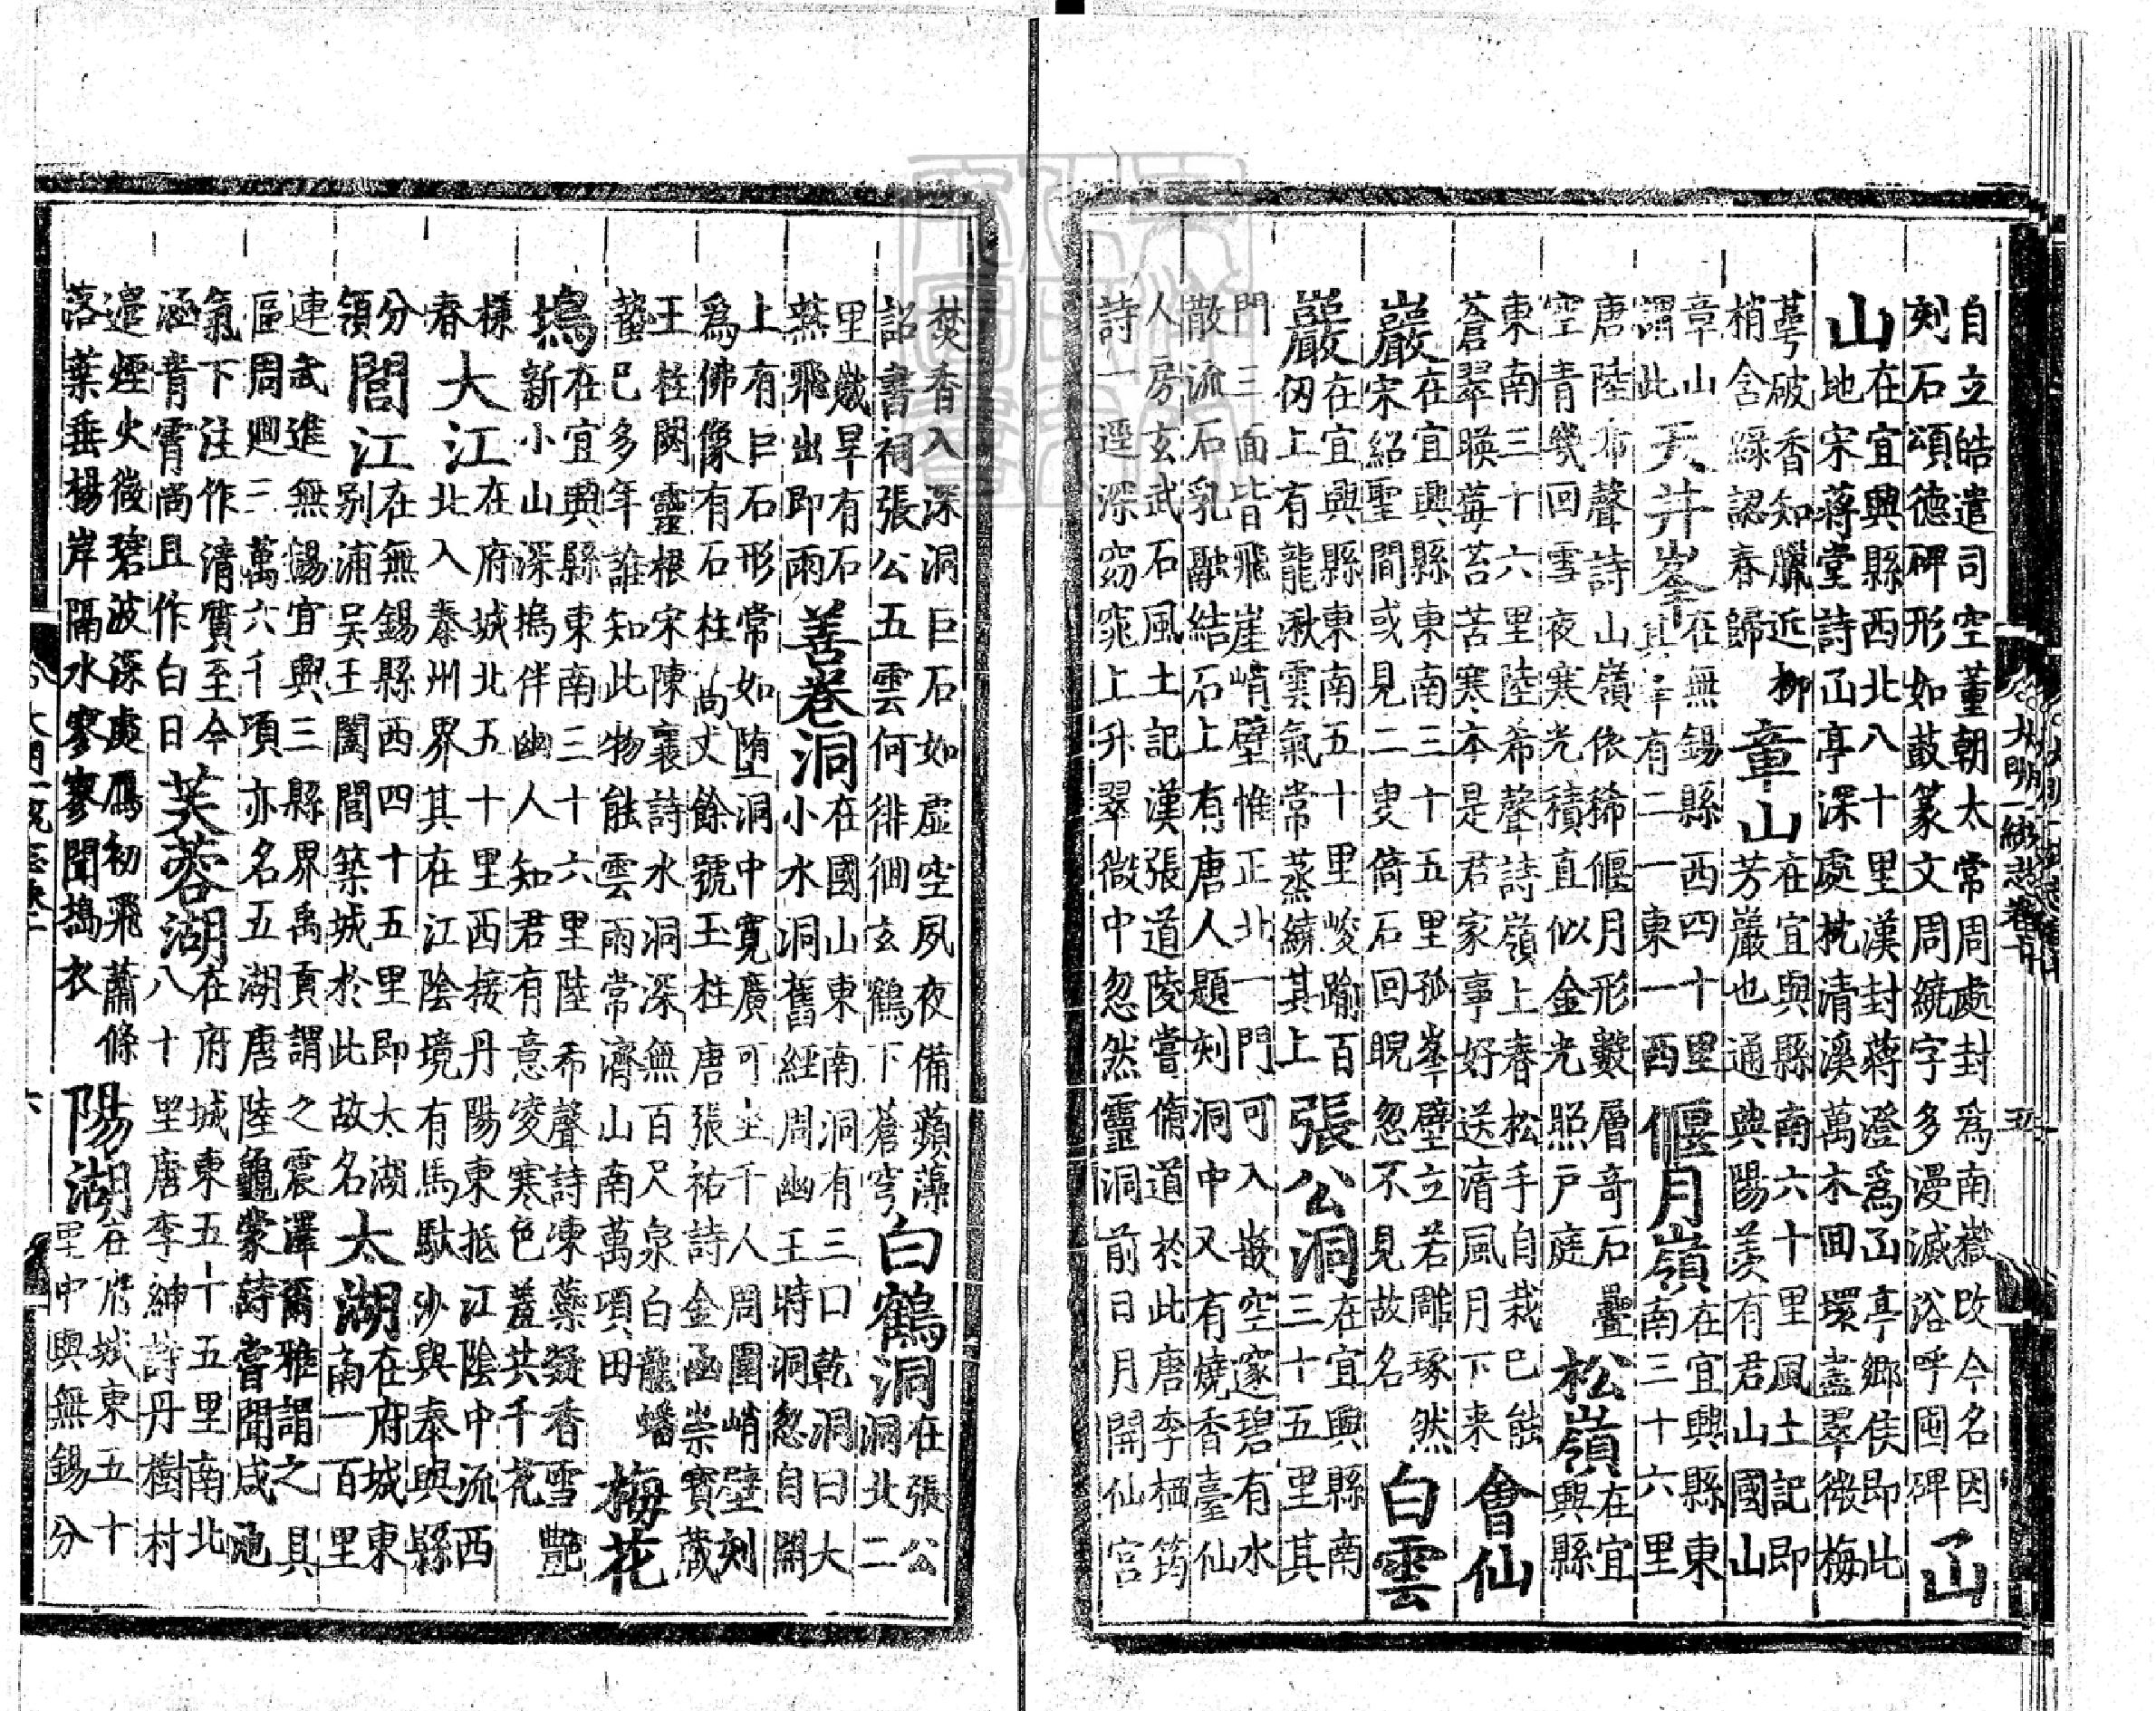 自立皓遣司空董朝太常周處封為南嶽改今名因
刻石頌德碑形如鼓篆文周繞字多漫滅俗呼囤碑
㞦
山
在宜興縣西北八十里漢封蔣澄爲㞦亭鄉侯即此
地宋蔣堂詩㞦亭深處枕清溪萬木囬環盡翠微梅
萼破香知臘近柳
梢含綠認春歸
章山
在宜興縣南六十里風土記即
芳巖也通典陽羨有君山國山
章山
謂此
天井峯
在無錫縣西四十里
有二一東一西
偃月嶺
在宜興縣東
南三十六里
唐陸希聲詩山嶺依稀偃月形數層奇石疊
空青幾回雪夜寒光積直似金光照戶庭
松嶺
在宜
興縣
東南三十六里陸希聲詩嶺上春松手自栽已能
蒼翠暎莓苔苦寒本是君家事好送清風月下来
會仙
巖
在宜興縣東南三十五里孤峯壁立若雕琢然
宋紹聖間或見二叟倚石回睨忽不見故名
白雲
巖
在宜興縣東南五十里峻踰百
仞上有龍湫雲氣常蒸繞其上
張公洞
在宜興縣南
三十五里其
門三面皆飛崖峭壁惟正北一門可入嵌空邃碧有水
散流石乳融結石上有唐人題刻洞中又有燒香臺仙
人房玄武石風土記漢張道陵嘗脩道於此唐李栖筠
詩一逕深窈窕上升翠微中忽然靈洞前日月開仙宮
大明一統志卷十
五
焚香入深洞巨石如虛空夙夜備蘋藻
詔書祠張公五雲何徘徊玄鶴下蒼穹
白鶴洞
在張公
洞北二
里歲旱有石
燕飛出即雨
善卷洞
在國山東南洞有三口乾洞曰大
小水洞舊經周幽王時洞忽自開
上有巨石形常如墮洞中寛廣可坐千人周圍峭壁刻
爲佛像有石柱高丈餘號玉柱唐張祐詩金函崇寳藏
玉柱閟靈根宋陳襄詩水洞深無百尺泉白龍蟠
蟄已多年誰知此物能雲雨常濟山南萬項田
梅花
塢
在宜興縣東南三十六里陸希聲詩凍蘂凝香雪豔
新小山深塢伴幽人知君有意凌寒色羞共千花
樣
春
大江
在府城北五十里西接丹陽東抵江隂中流西
北入泰州界其在江隂境有馬馱沙與泰興縣
分
領
閭江
在無錫縣西四十五里即太湖
别浦吴王闔閭築城於此故名
太湖
在府城東
南一百里
連武進無錫宜興三縣界禹貢謂之震澤爾雅謂之具
區周廻三萬六千項亦名五湖唐陸龜蒙詩嘗聞咸池
氣下注作清質至今
涵青霄尚且作白日
芙蓉湖
在府城東五十五里南北
八十里唐李紳詩丹樹村
邉煙火微碧波深處鴈初飛蕭條
落葉垂楊岸隔水寥寥聞擣衣
陽湖
在府城東五十
里中與無錫分
大明一統志卷十
六